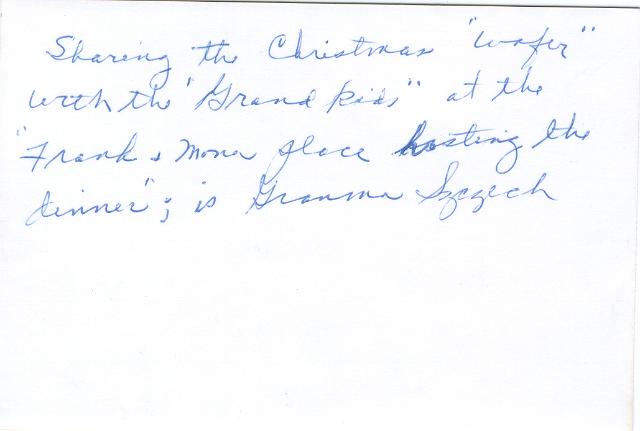 Sharing the Christmas "wafer"
with the "Grand kids" at the
"Frank & Mona place hosting the
dinner"; is Granma Szczech